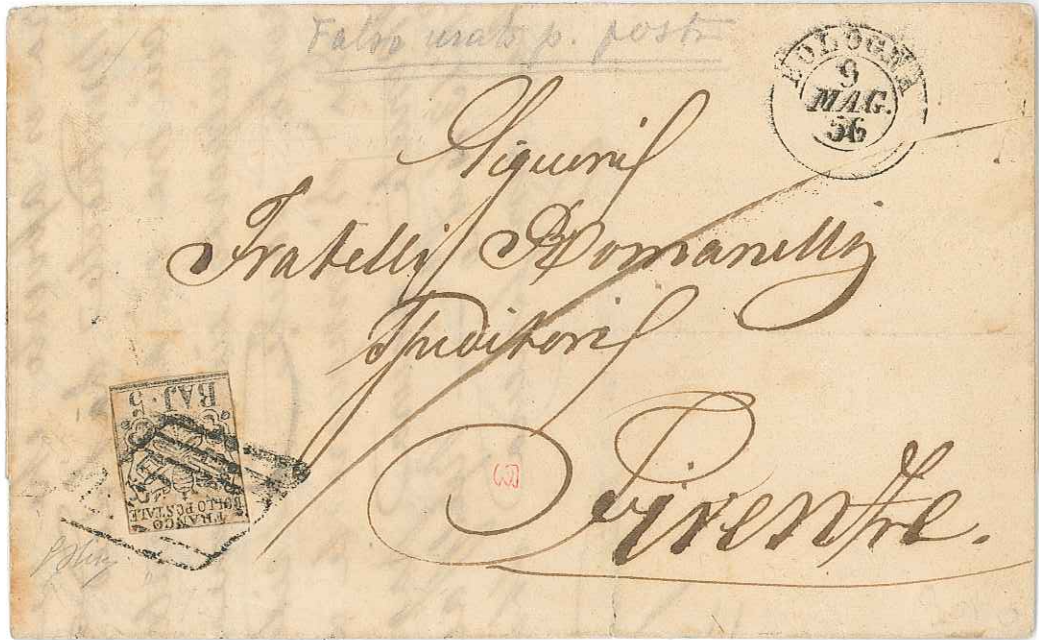 Falso usato p. posta
BOLOGNA
9
MAG.
56
Signori
Fratelli Romanelli
Speditori
Firenze.
BAJ. 5
FRANCO
BOLLO POSTALE